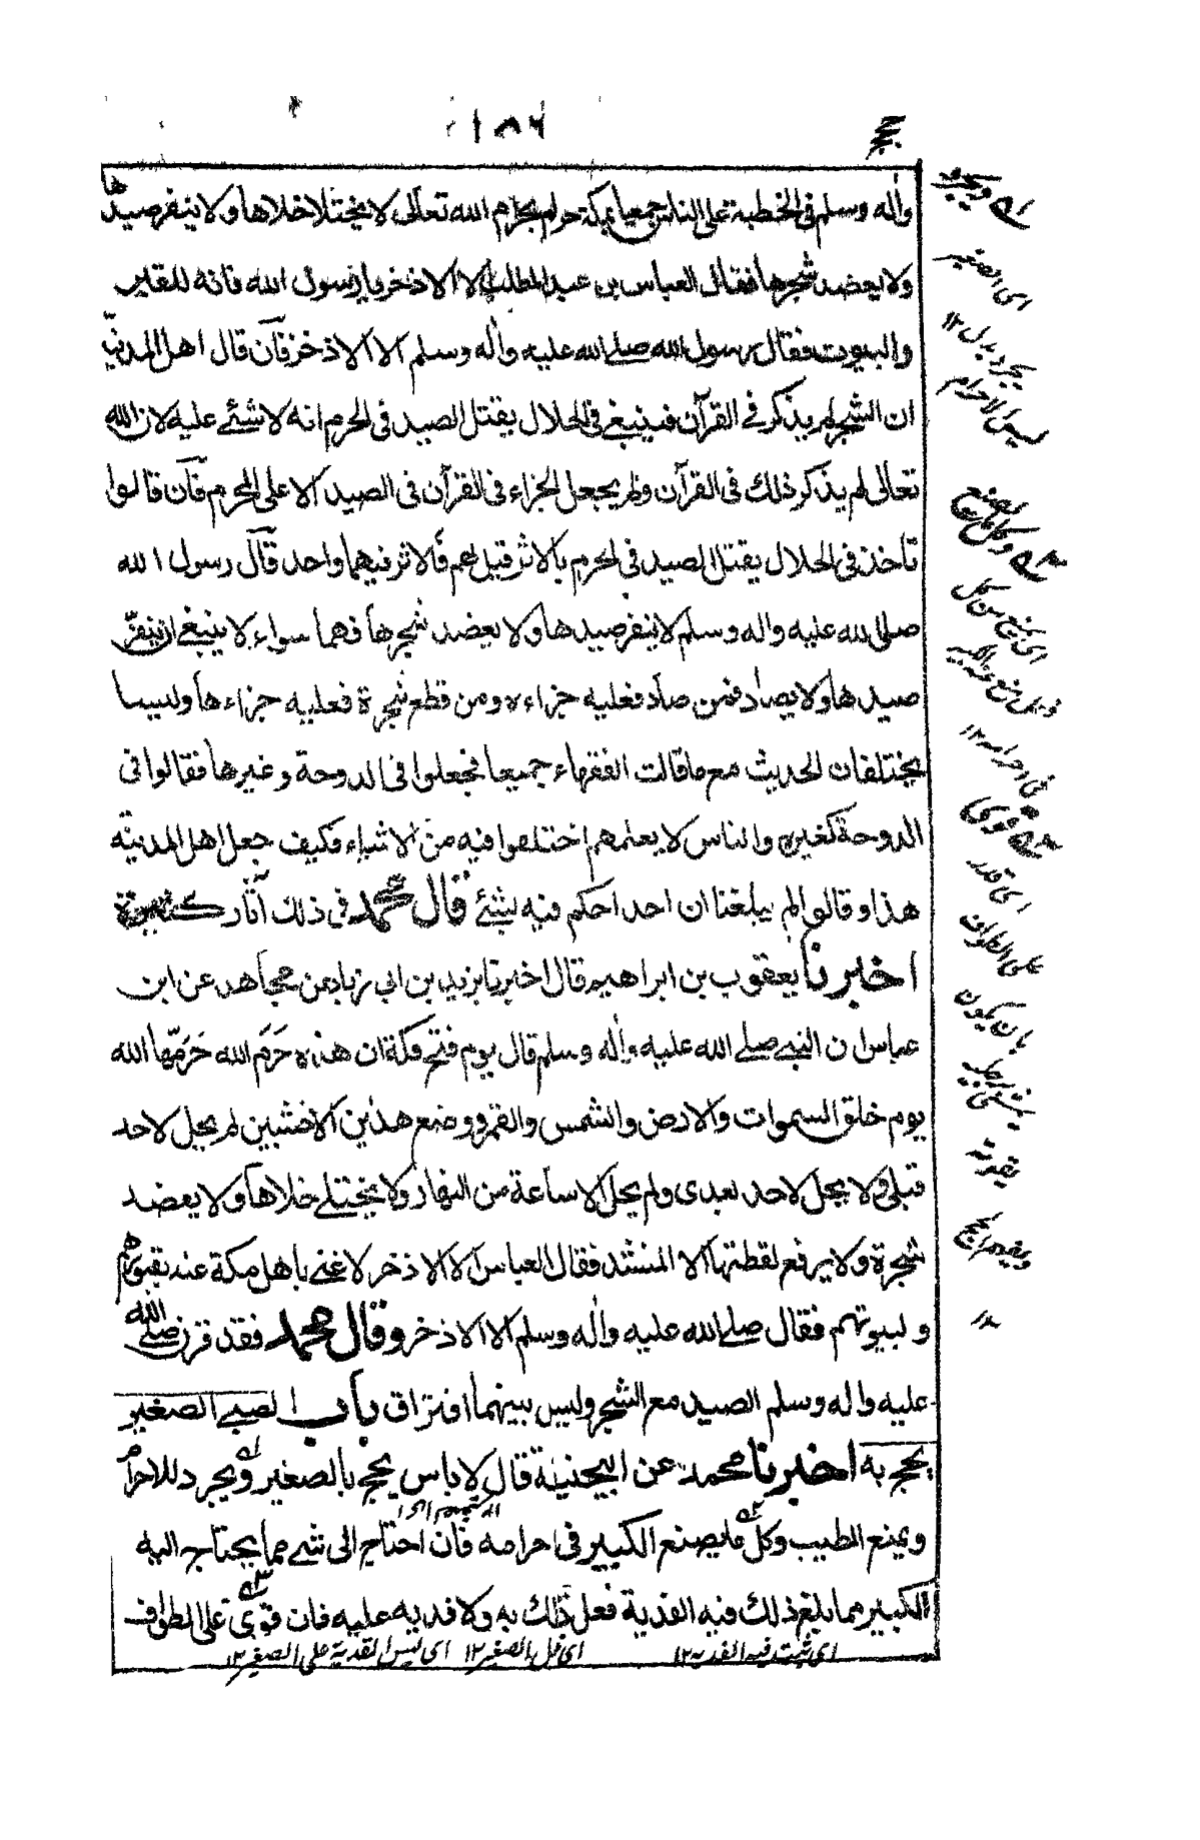 حج
١٨٦
وأله وسلم فى الخطبة على الناس جميعا بمكة حرام بحرام الله تعالى لا يختلا خلاها ولا ينفر صيدها
ولا يعضد شجرها فقال العباس بن عبد المطلب الا الاذخر يا رسول الله فانه للقابر
والبيوت فقال رسول الله صلے الله عليه وأله وسلم الا الاذخر فآن قال اهل المدنية
ان الشجر لم يذكر فے القرآن فينبغے فى الحلال يقتل الصيد فى الحرم انه لا شئے عليه لان الله
تعالى لم يذكر ذلك فى القرآن ولم يجعل الجزاء فى القرآن فى الصيد الا على المحرم فآن قالوا
تأخذ فى الحلال يقتل الصيد فى الحرم بالاثر قيل نعم فالاثر فيهما واحد قآل رسول الله
صلى الله عليه واله وسلم لا ينفر صيدها ولا يعضد شجرها فهما سواء لا ينبغے ان ينفّر
صيدها ولا يصاد فمن صاد فعليه جزاءه ومن قطع شجرة فعليه جزاءها وليسا
يختلفان الحديث مع ما قالت الفقهاء جميعا فجعلوا فى الدوحة وغيرها فقالوا فى
الدوحة كغيره والناس لا يعلمهم اختلفوا فيه من الاشياء فكيف جعل اهل المدنيّة
هذا وقالوا لم يبلغنا ان احد احكم فيه بشئے قال محمد فى ذلك آثار كثيرة
اخبرنا يعقوب بن ابراهيم قال اخبرنا يزيد بن ابى زياد من مجاهد عن ابن
عباس ان النبے صلے الله عليه وأله وسلم قال يوم فتح مكة ان هذه حَرَم الله حَرَمّها الله
يوم خلق السموات والارض والشمس والقمر ووضع هذين الاخشبين لم يحل لاحد
قبلى ولا يحل لاحد بعدى ولم يحل الا ساعة من النهار ولا يختلے خلاها ولا يعضد
شجرة ولا يرفع لقطتها الا المنشد فقال العباس الا الاذخر لا غنے باهل مكة عنه بقبورهم
ولبيوتهم فقال صلے الله عليه وأله وسلم الا الاذخر وقال محمد فقد قرن صلے الله
عليه واله وسلم الصيد مع الشجر وليس بينهما افتراق باب الصبے الصغير
يحج به اخبرنا محمد عن ابيحنيفة قال لا باس يحج بالصغير ويجرد للاحرام
ويمنع الطيب وكل ما يصنع الكبير فى احرامه فان احتاج الى شے مما يحتاج اليه
الكبير مما بلغ ذلك فيه الفدية فعل ذلك به ولا فديه عليه فان قوى على الطواف
اى ثبت فيه الفديه ١٢ اى فعل بالصغير ١٢ اى ليس الفدية على الصغير ١٢
ويجرد
اى الصغير
يجرد بدل ١٢
لبس الاحرام
وكل ما يصنع
قوى
اى قدر
على الطواف
بان يكون